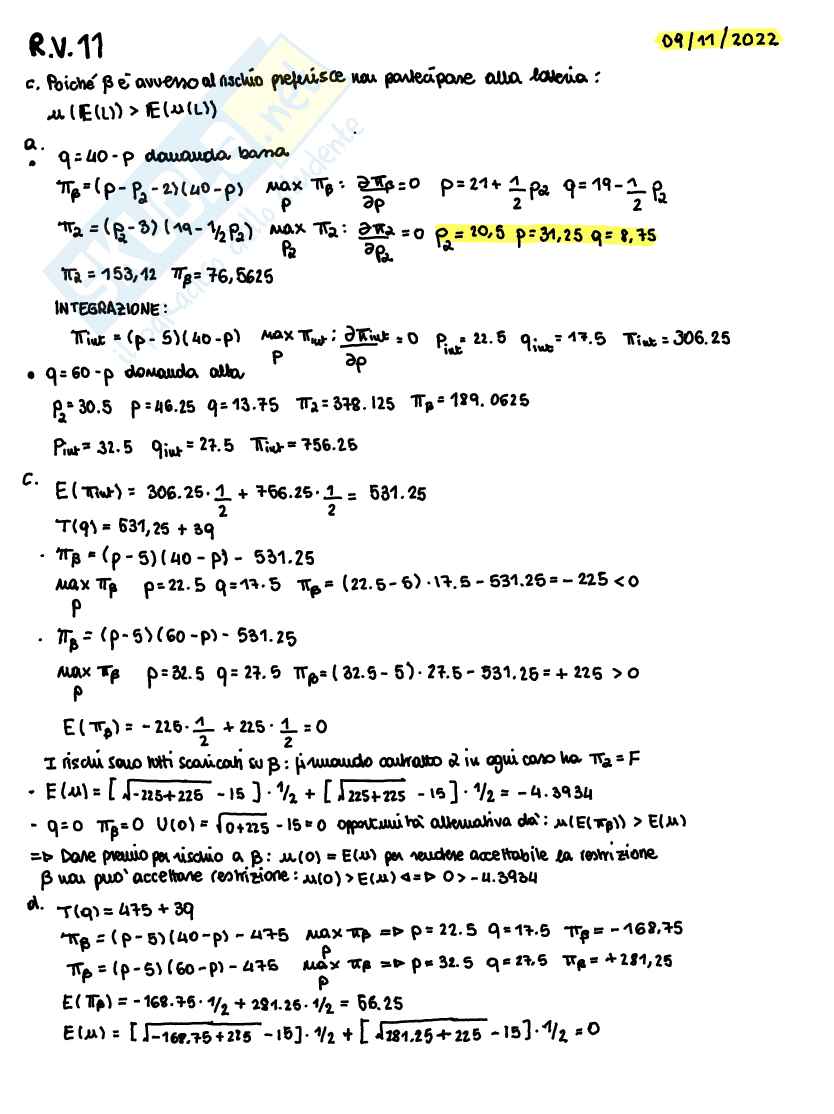 R.V. 11
09/11/2022
c. Poiché β è avverso al rischio preferisce non partecipare alla lotteria:
u(E(L)) > E(u(L))
a.
• q=40-p domanda bassa
πβ=(p-p₂-2)(40-p) max p πβ: ∂πβ/∂p=0 p=21+1/2 p₂ q=19-1/2 p₂
π₂=(p₂-3)(19-1/2p₂) max p₂ π₂: ∂π₂/∂p₂=0 p₂=20,5 p=31,25 q=8,75
π₂=153,12 πβ=76,5625
INTEGRAZIONE:
πint=(p-5)(40-p) max p πint: ∂πint/∂p=0 pint=22.5 qint=17.5 πint=306.25
• q=60-p domanda alta
p₂=30.5 p=46.25 q=13.75 π₂=378.125 πβ=189.0625
pint=32.5 qint=27.5 πint=756.25
c.
E(πint)=306.25·1/2+756.25·1/2=531.25
T(q)=531,25+3q
· πβ=(p-5)(40-p)-531.25
max p πβ p=22.5 q=17.5 πβ=(22.5-5)·17.5-531.25=-225<0
· πβ=(p-5)(60-p)-531.25
max p πβ p=32.5 q=27.5 πβ=(32.5-5)·27.5-531.25=+225>0
E(πβ)=-225·1/2+225·1/2=0
I rischi sono tutti scaricati su β: firmando contratto 2 in ogni caso ha π₂=F
- E(u)=[√-225+225 -15]·1/2+[√225+225 -15]·1/2=-4.3934
- q=0 πβ=0 U(0)=√0+225 -15=0 opportunità alternativa dà: u(E(πβ))>E(u)
=▷ Dare premio per rischio a β: u(0)=E(u) per rendere accettabile la restrizione
β non può accettare restrizione: u(0)>E(u) ◁=▷ 0>-4.3934
d.
T(q)=475+3q
πβ=(p-5)(40-p)-475 max p πβ =▷ p=22.5 q=17.5 πβ=-168,75
πβ=(p-5)(60-p)-475 max p πβ =▷ p=32.5 q=27.5 πβ=+281,25
E(πβ)=-168.75·1/2+281.25·1/2=56.25
E(u)=[√-168.75+225 -15]·1/2+[√281.25+225 -15]·1/2=0
SKUOLA.net